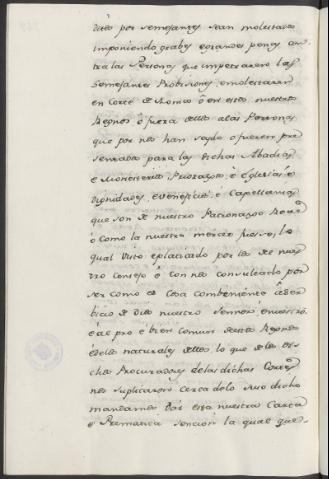 dello por semejantes sean molestados
imponiendo grabes e grandes penas con
tra las Personas que impetraren las
semejantes Probisiones, e molestaren
en Corte de Roma ó en estos nuestros
Reynos ó fuera dellos alas Personas
que por nos han seydo o fueren pre
sentados para las dichas Abadias
e Monesterios Priorazgos, é Eglesias é
Dignidades, e veneficios é Capellanias
que son de nuestro Patronazgo Real
ó como la nuestra merced fuesse, lo
qual visto e platicado por los de nues
tro Consejo é con nos consultado por
ser como es cosa combeniente á ser
bicio de Dios nuestro Señor é nuestro
é al pro é bien comun destos Reynos
é delos naturales dellos, lo que delos di
chos Procuradores de las dichas Cortes
nos suplicaron cerca delo suso dicho
mandamos dar esta nuestra Carta
é Prematica sencion la qual que